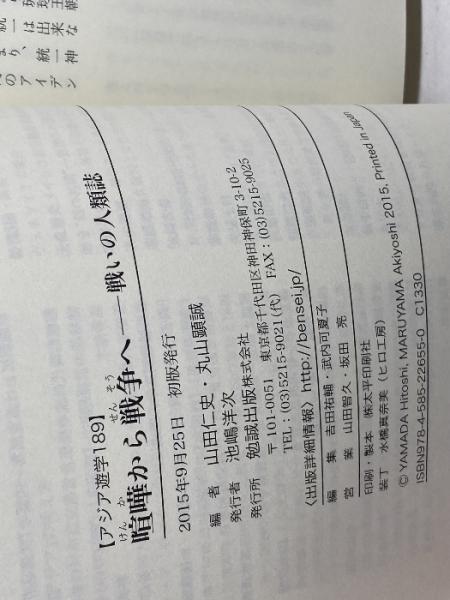 【アジア遊学189】
喧嘩から戦争へ――戦いの人類誌
けんか せんそう
2015年9月25日 初版発行
編 者 山田仁史・丸山顕誠
発行者 池嶋洋次
発行所 勉誠出版株式会社
〒101-0051 東京都千代田区神田神保町3-10-2
TEL：(03)5215-9021(代) FAX：(03)5215-9025
〈出版詳細情報〉http://bensei.jp/
編 集 吉田祐輔・武内可夏子
営 業 山田智久・坂田 亮
印刷・製本 ㈱太平印刷社
装丁 水橋真奈美（ヒロ工房）
© YAMADA Hitoshi, MARUYAMA Akiyoshi 2015, Printed in Japan
ISBN978-4-585-22655-0 C1330
は出来な
統一神
のアイデン